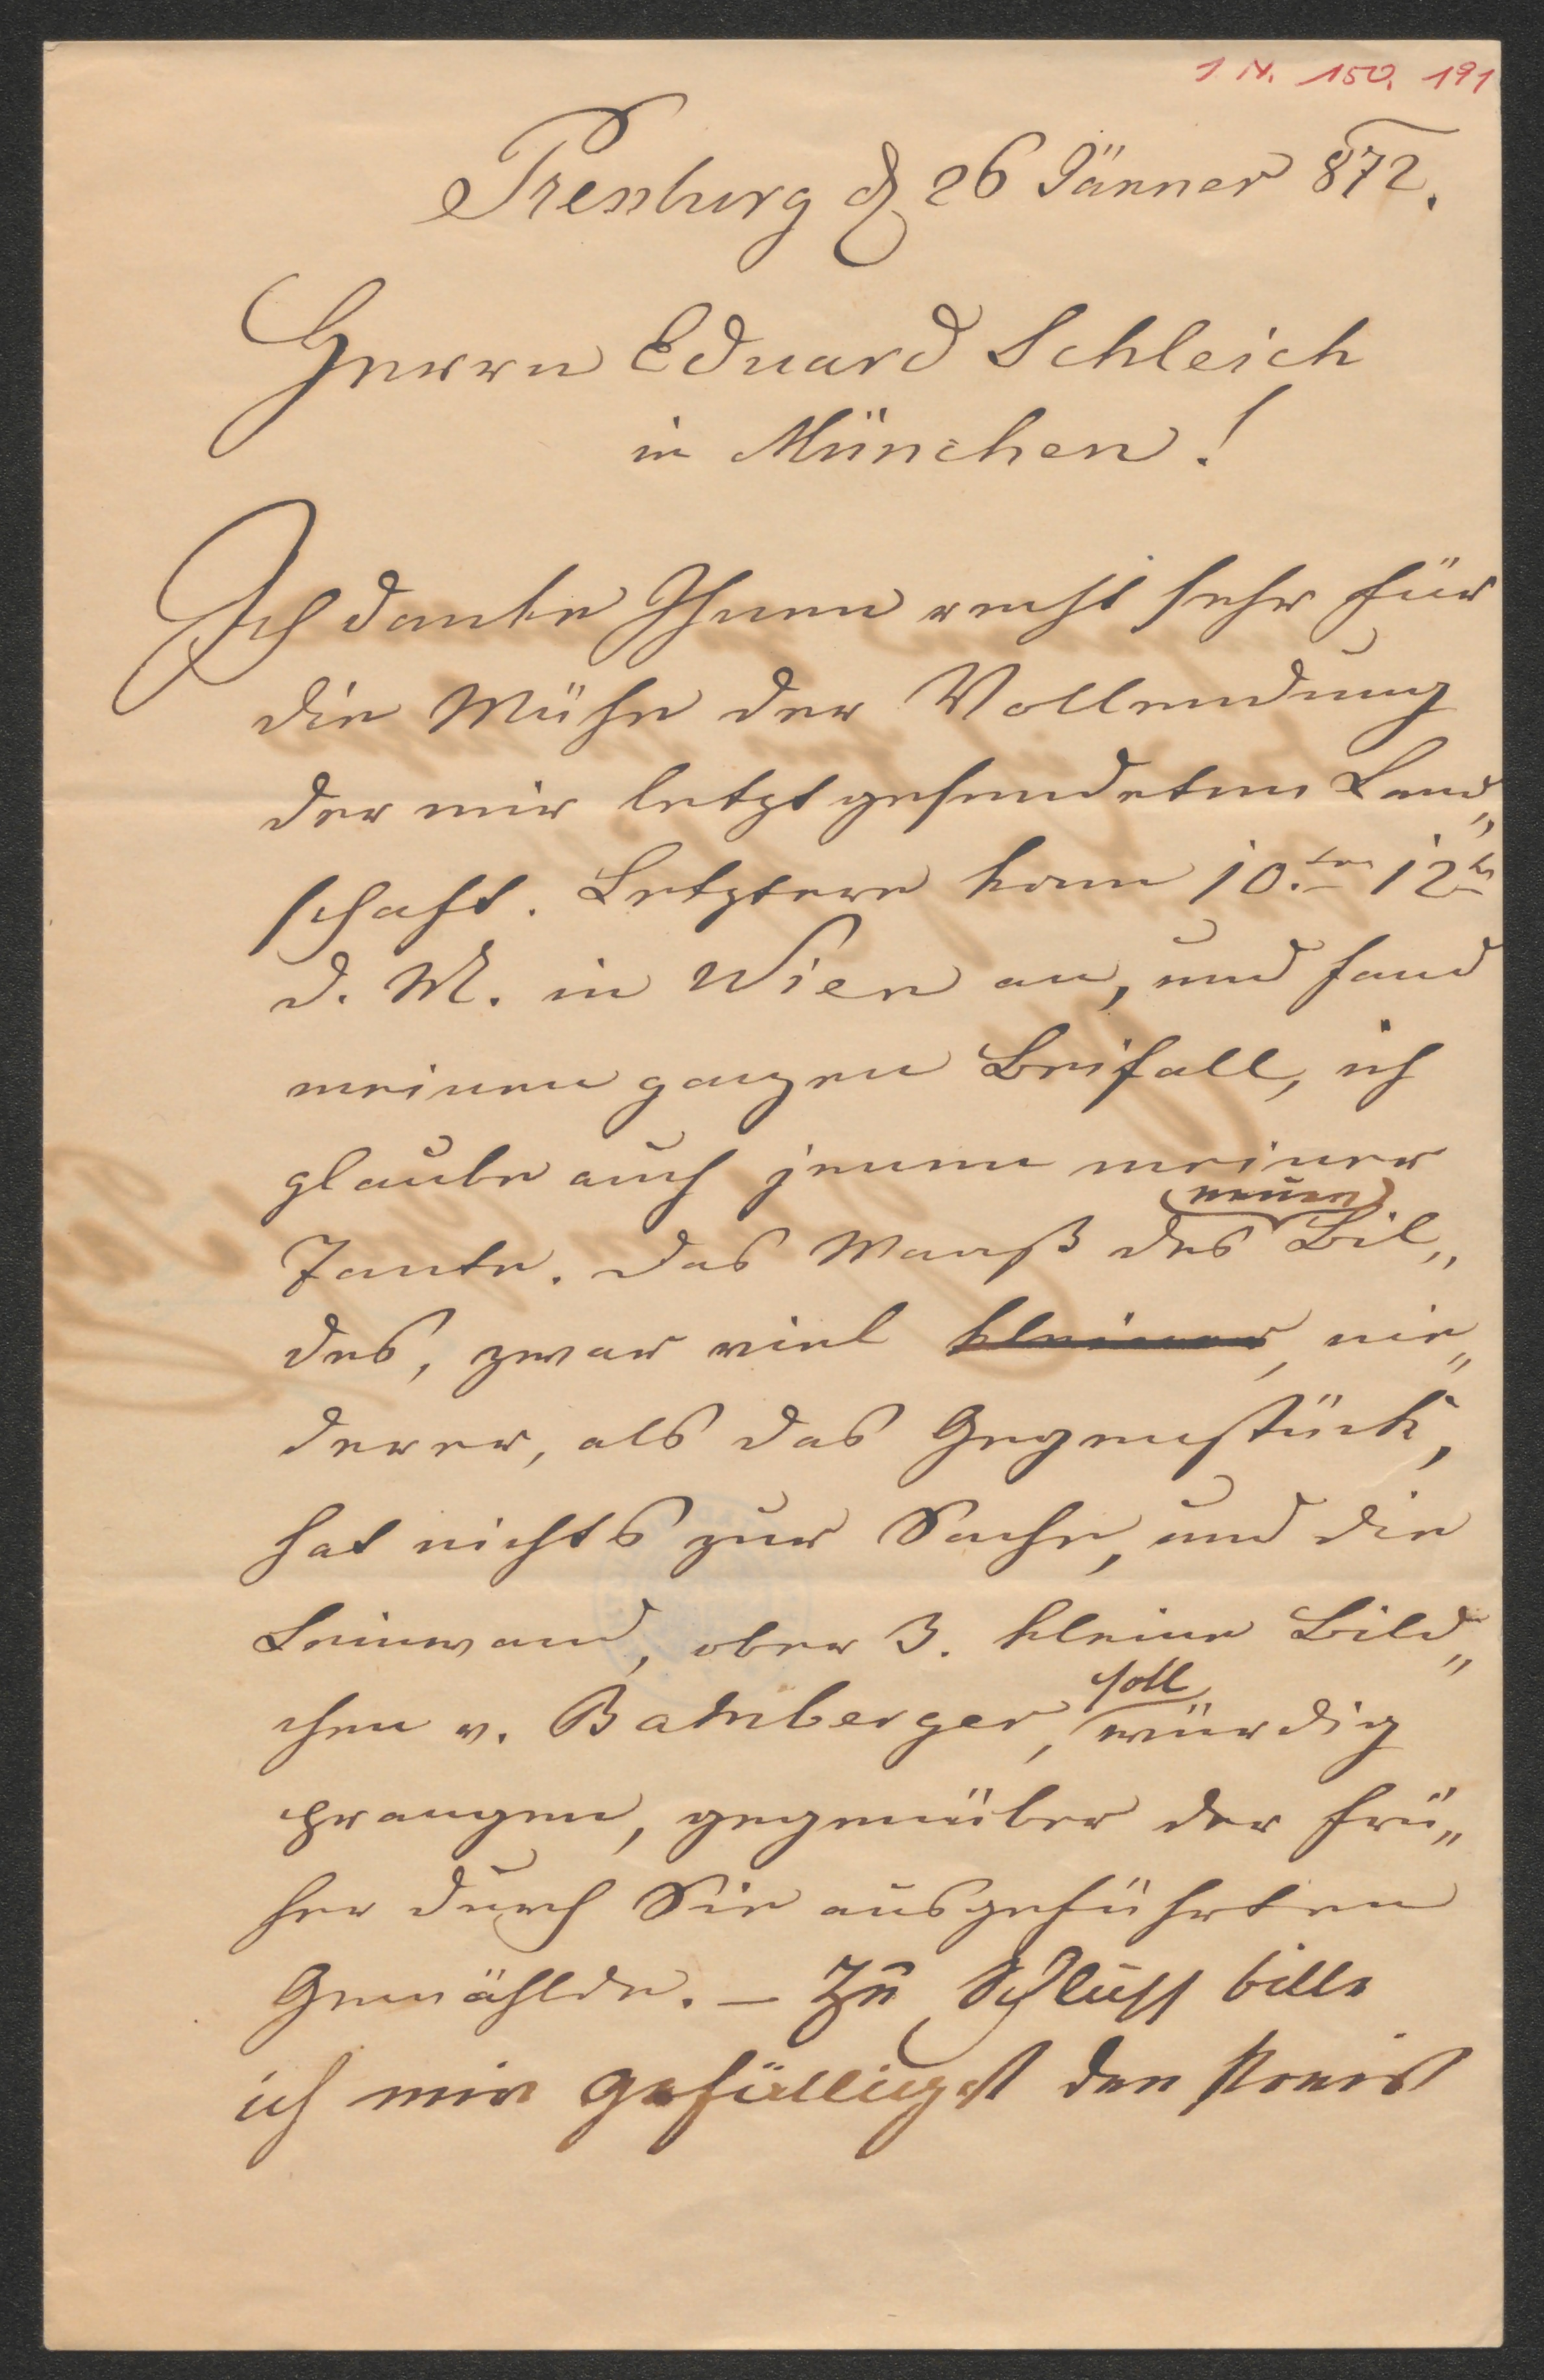 I N. 150. 191
Presburg d 26 Jänner 872.
Herrn Eduard Schleich
in München!
Ich danke Ihnen recht sehr für
die Mühe der Vollendung
der mir letzt gesendeten Land„
schaft. Letztere kam 10.ten 12ten
d. M. in Wien an, und fand
meinen ganzen Beifall, ich
glaube auch jenen meiner
Tante. Das Maaß des neuen Bil„
des, zwar viel kleiner, nie„
derer, als das Gegenstück,
hat nichts zur Sache, und die
Leinwand, ober 3. kleine Bild„
chen v. Bamberger, soll würdig
prangen, gegenüber der frü„
her durch Sie ausgeführten
Gemählde. – Zu Schluss bitte
ich mir gefälligst den Preis